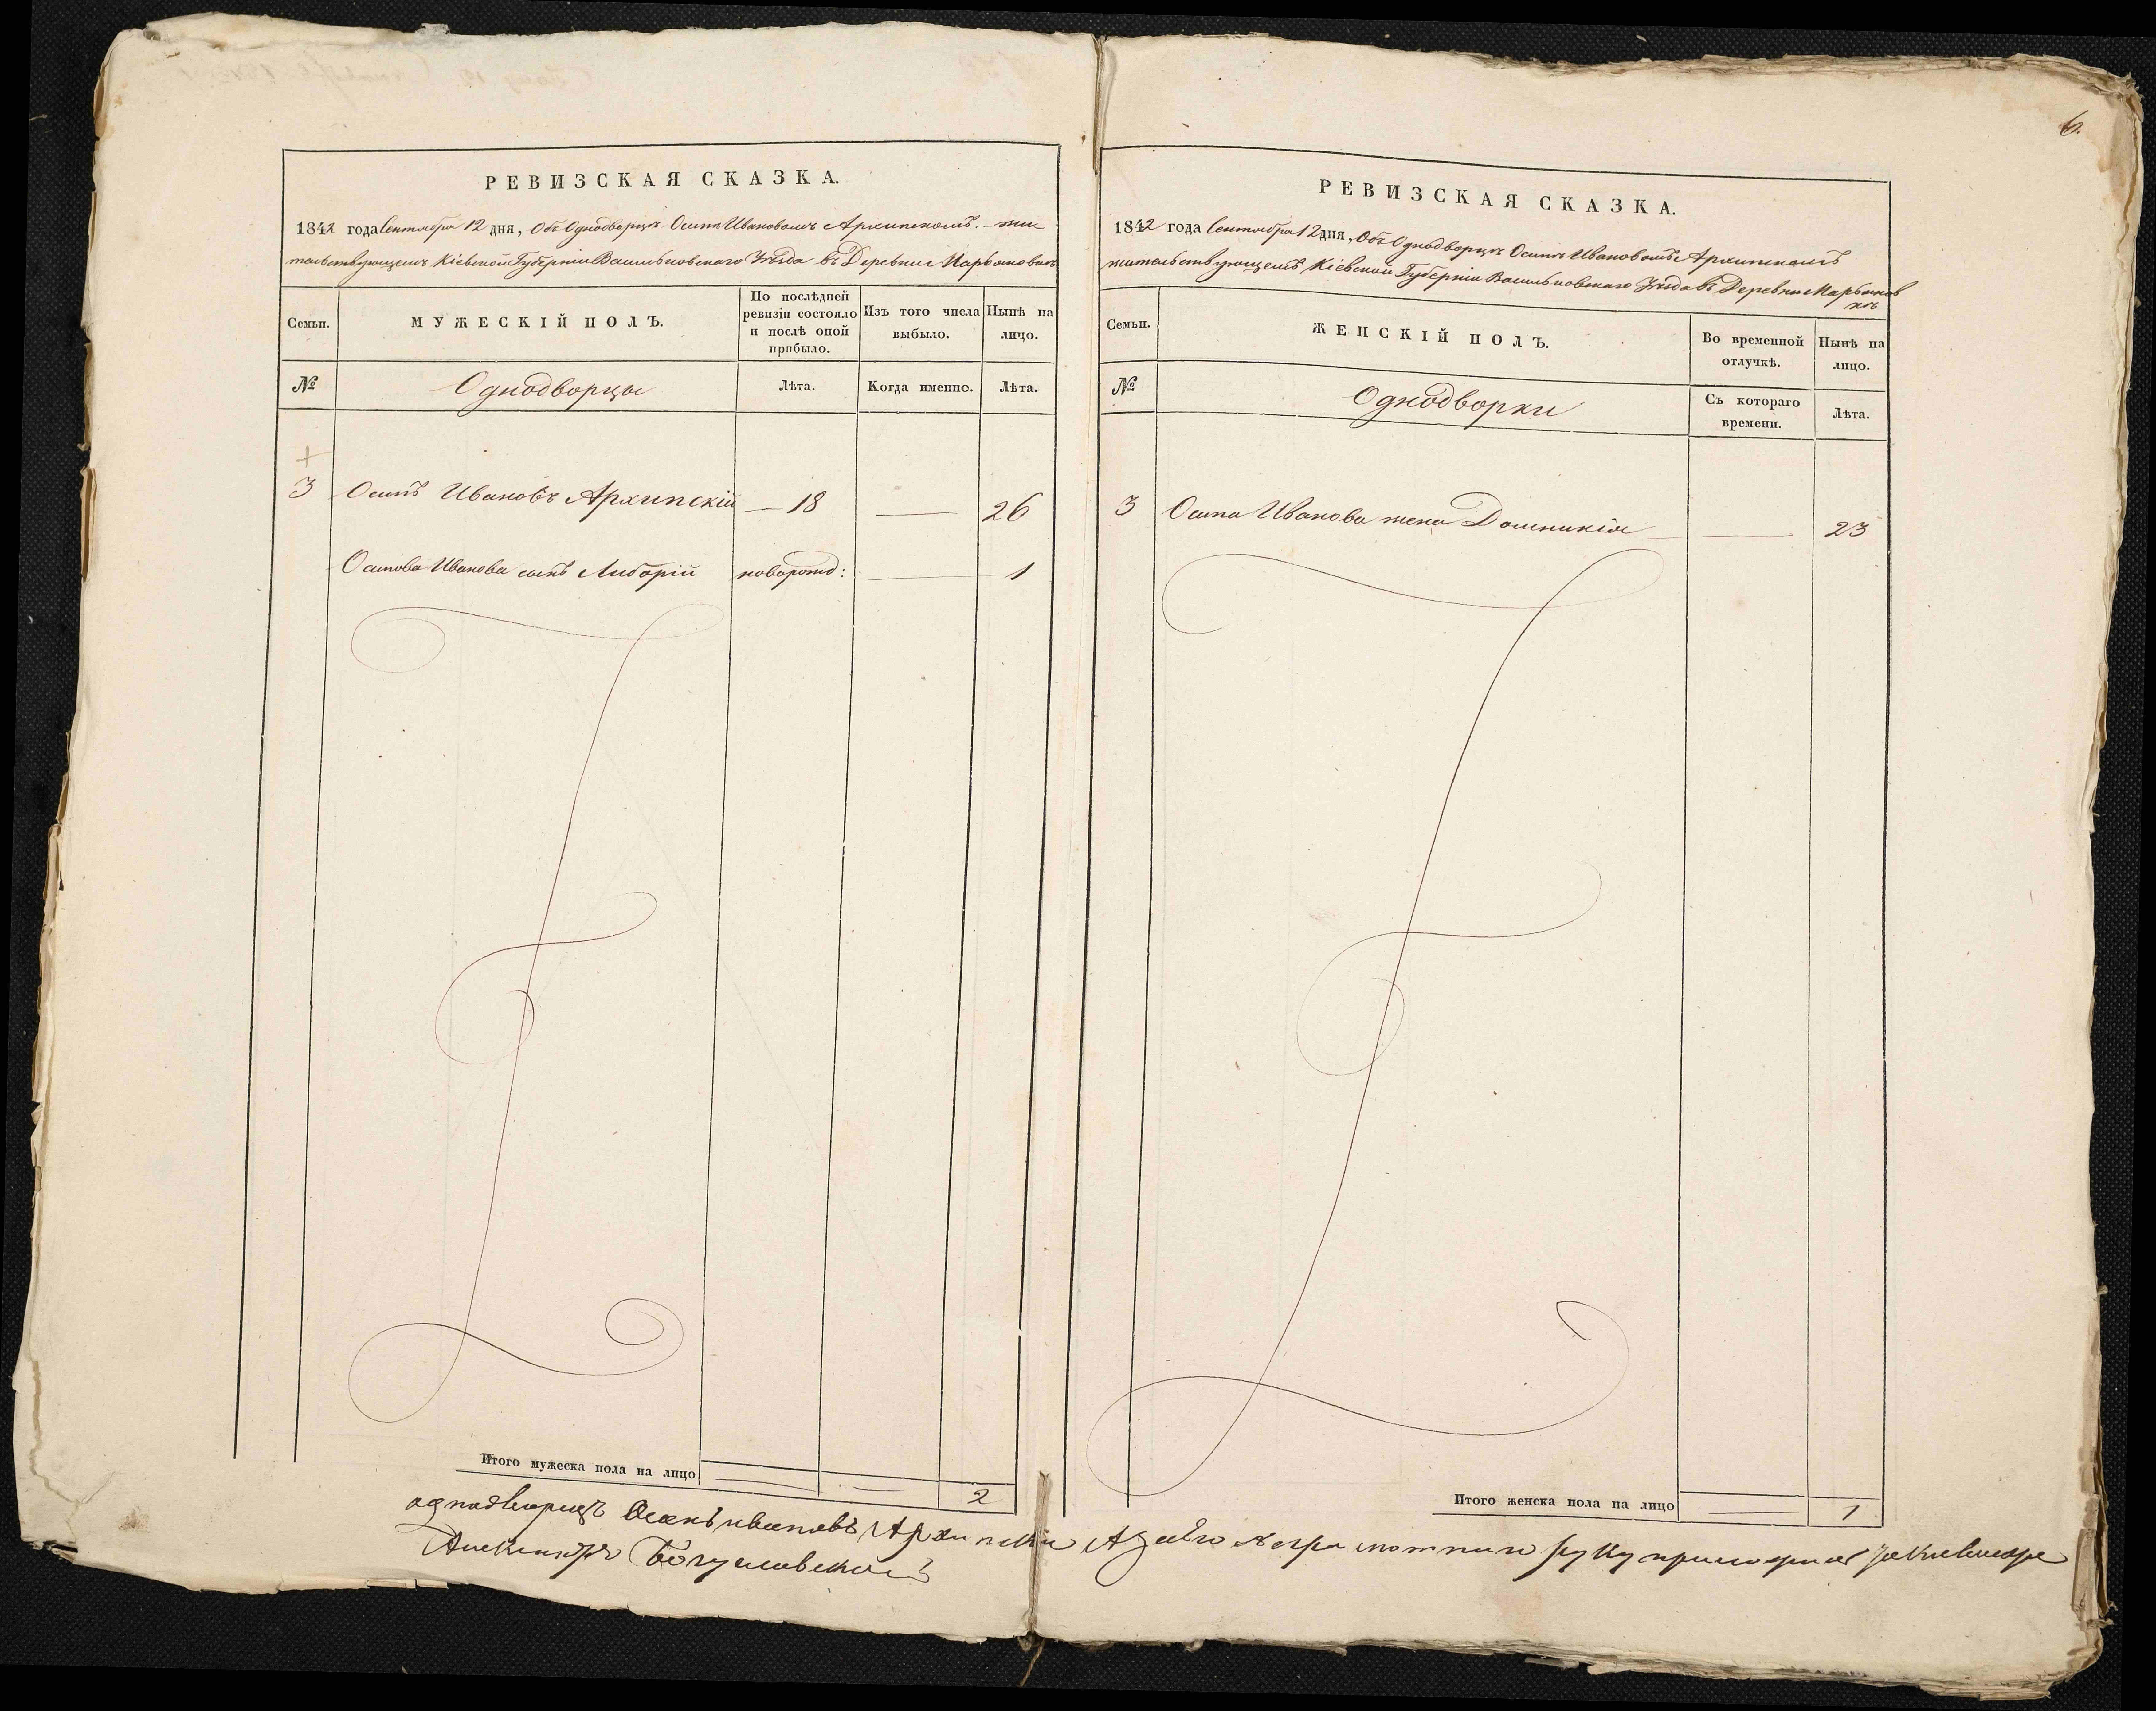 6.
РЕВИЗСКАЯ СКАЗКА.
1842 года Сентября 12 дня, Объ Однодворцѣ Осипѣ Ивановомъ Архипскомъ. – жи-
тельствующемъ Кіевской Губерніи Васильковскаго Уѣзда въ Деревнѣ Марьяновкѣ
Семьи.
МУЖЕСКІЙ ПОЛЪ.
По послѣдней
ревизіи состояло
и послѣ оной
прибыло.
Изъ того числа
выбыло.
Нынѣ на
лицо.
№
Однодворцы
Лѣта.
Когда именно.
Лѣта.
3 Осипъ Ивановъ Архипскій — 18 — 26
Осипова Иванова сынъ Либорій новорожд: — 1
Итого мужеска пола на лицо — — 2
РЕВИЗСКАЯ СКАЗКА.
1842 года Сентября 12 дня, Объ Однодворцѣ Осипѣ Ивановомъ Архипскомъ
жительствующемъ Кіевской Губерніи Васильковскаго Уѣзда въ Деревнѣ Марьянов
кѣ
Семьи.
ЖЕНСКІЙ ПОЛЪ.
Во временной
отлучкѣ.
Нынѣ на
лицо.
№
Однодворки
Съ котораго
времени.
Лѣта.
3 Осипа Иванова жена Домникія — 23
Итого женска пола на лицо — 1
однодворецъ Осипъ Ивановъ Архипскій А за его неграмотнаго руку приложилъ
Богуславской